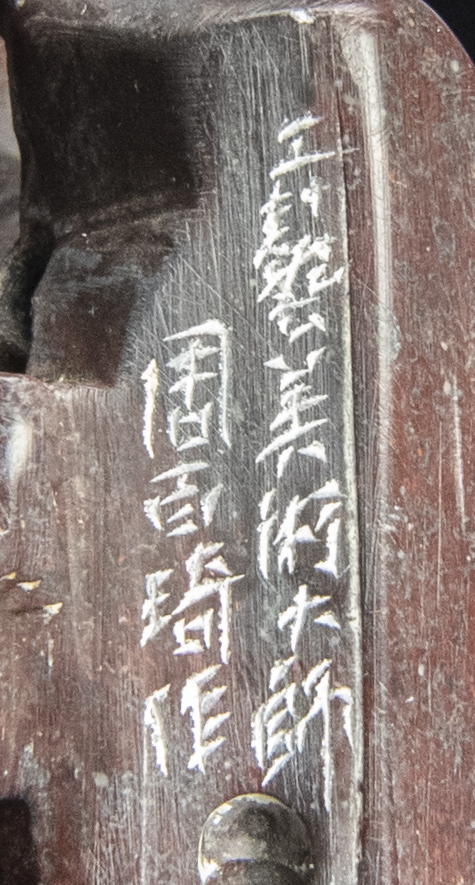 工藝美術大師
周百琦作